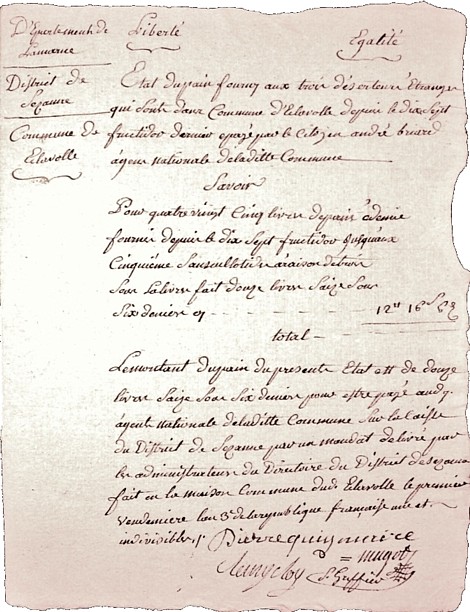 D'Epartement de Lamarne
Liberté
Egalité
District de Sezanne
Commune de Eclavolle
Etat du pain fourny aux trois déserteurs Etranger
qui sont dans Commune d'Eclavolle depuis le dix sept
fructidor dernier epayé par le Citoyen andré bruard
agens nationale de laditte Commune
Savoir
Pour quatre vingt Cinq livres de pain édemie
fournie depuis le dix sept fructidor Jusquaux
Cinquiéme Sansculotide araison de trois
Sous la livre fait douze livres Saize Sous
Six deniers cy 12tt 16s 6d
total
Lemontant du pain du presente Etat est de douze
livres Saize Sous Six deniers pour estre payé audy.
agent nationale de laditte Commune Sur la Caisse
du District de Sezanne par un mandat delivré par
les administrateurs du Directoire du District de Sezanne
fait en la maison Commune dudt Eclavolle le premier
vendemiere lan 3e de la republique française une et
indivisible
Pierre quinj maire
mugot
S. Greffier